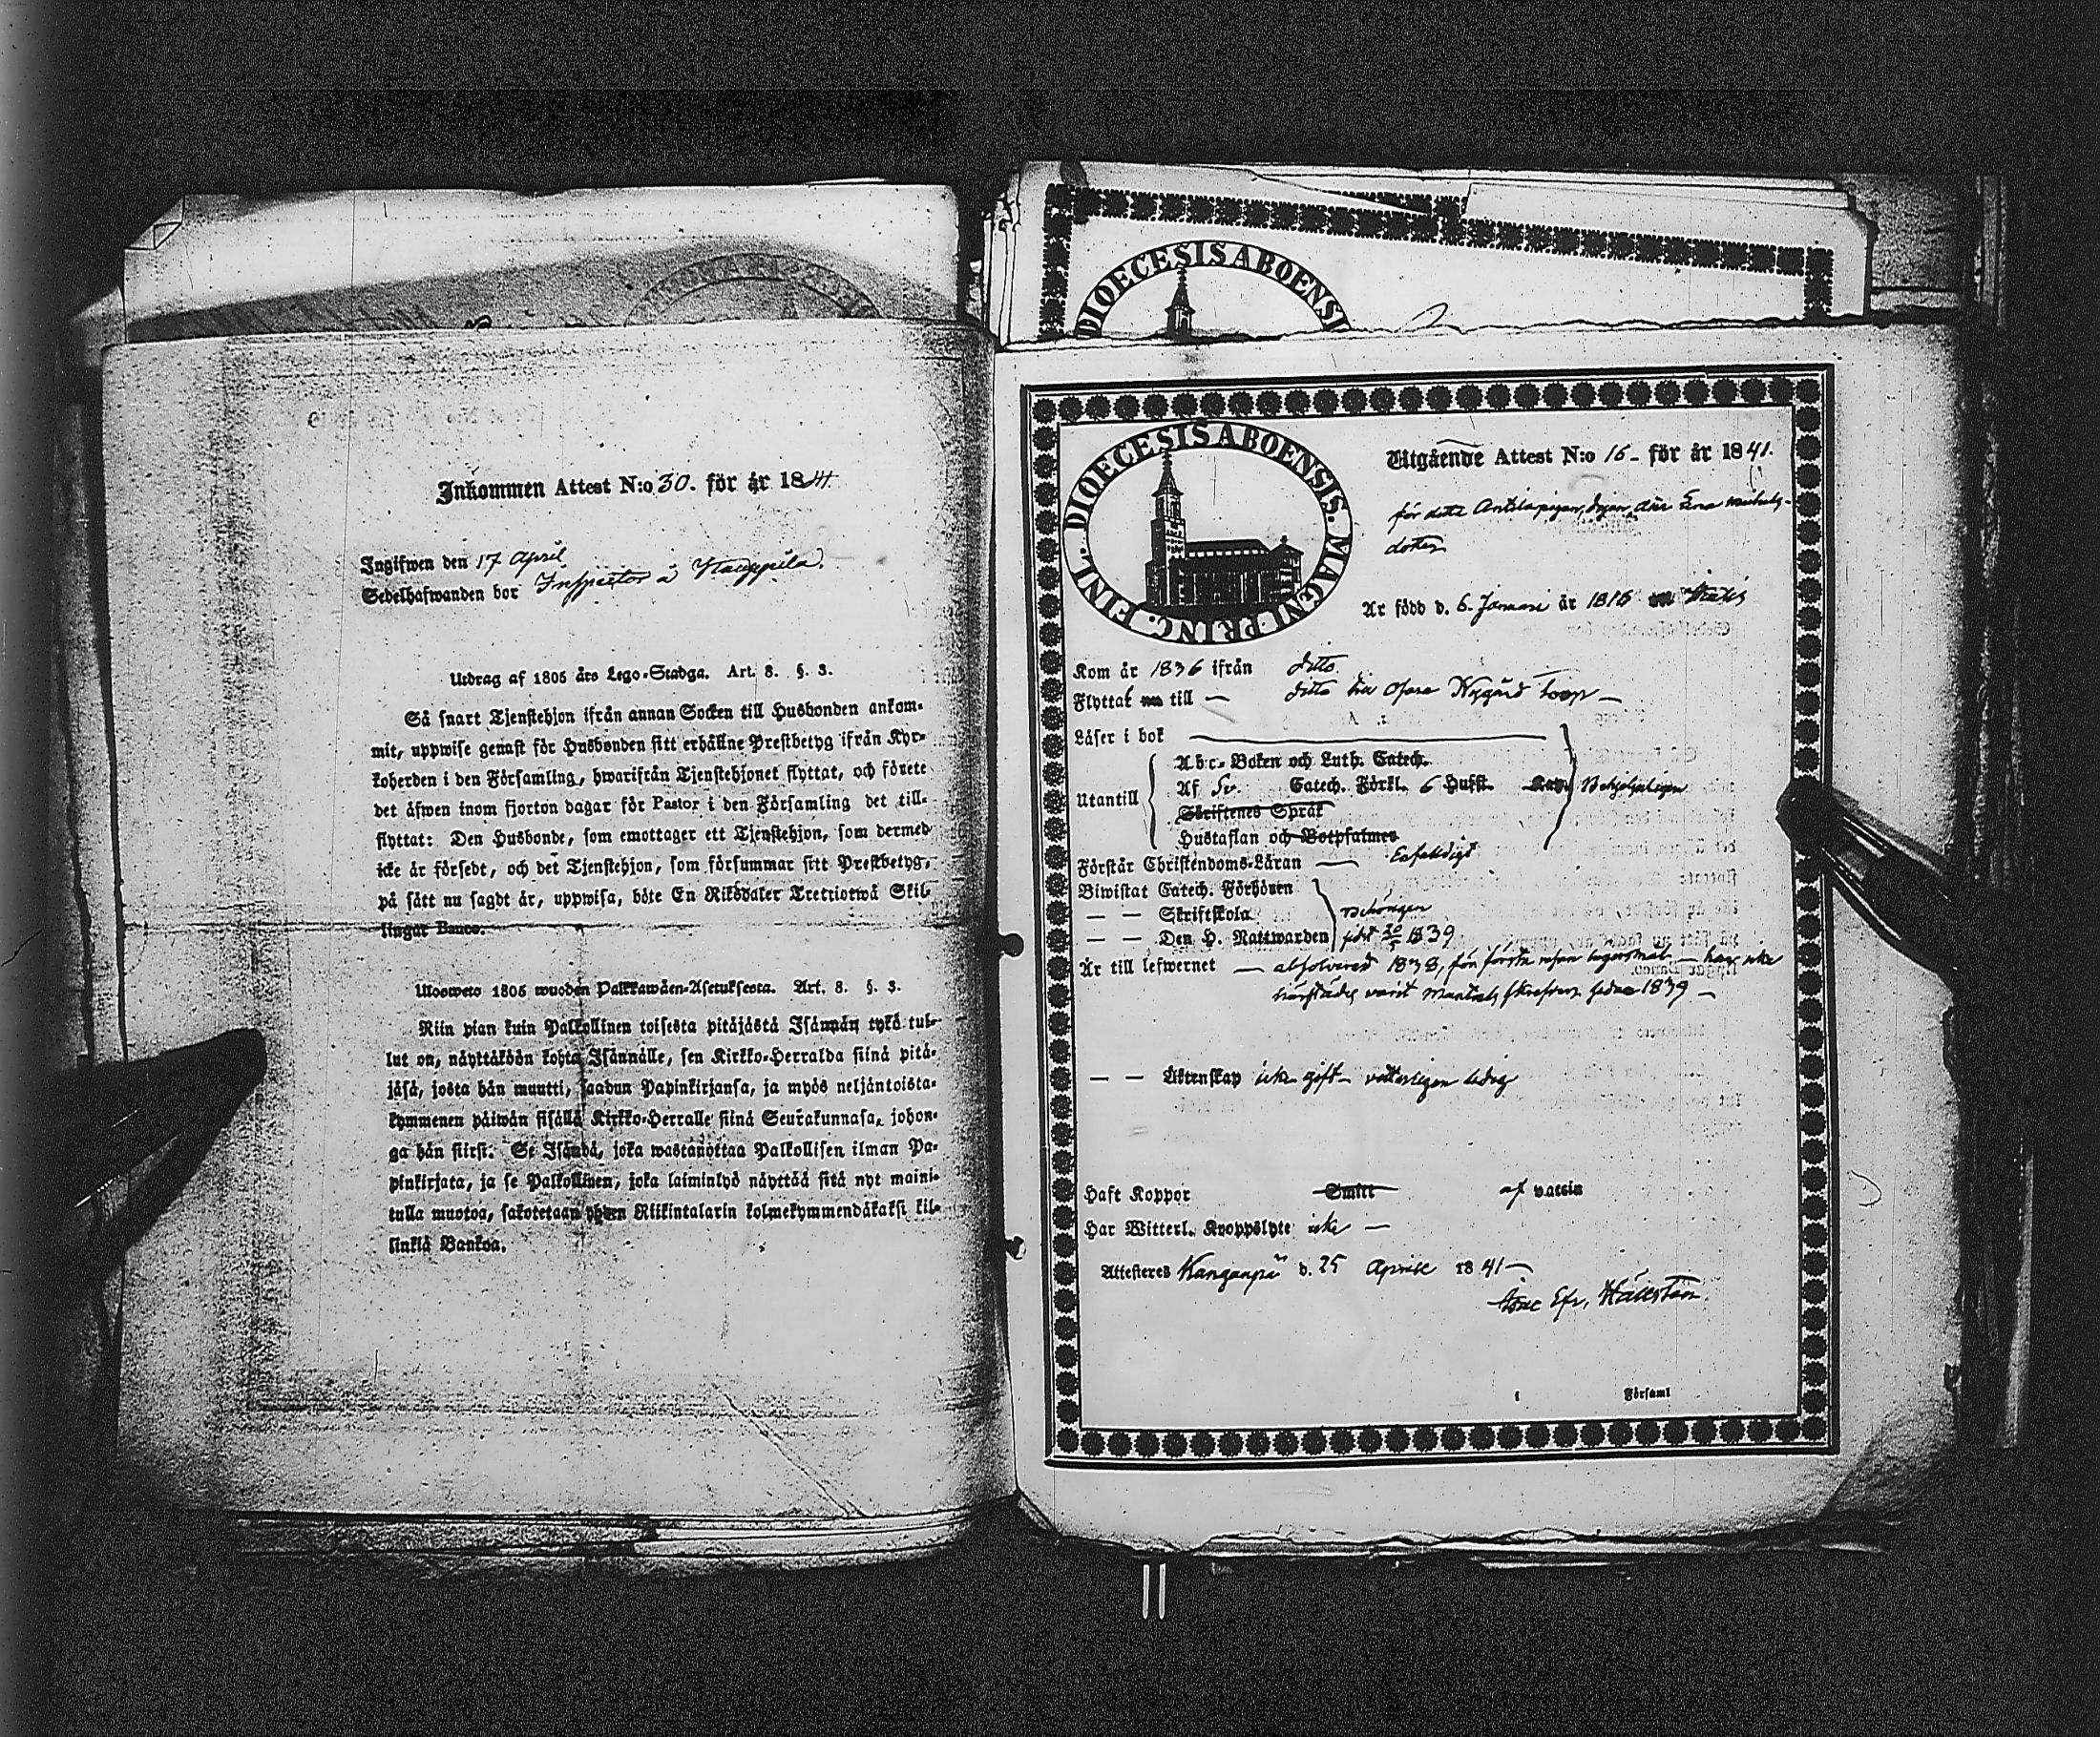 Inkommen Attest N:o 30. för år 1841.
Ingifwen den 17 April
Sedelhafwanden bor Inspector å
Utdrag af 1805 års Lego-Stadga. Art. 8. §. 3.
Så snart Tjenstehjon ifrån annan Socken till Husbonden ankom-
mit, uppwise genast för Husbonden sitt erhållne Prestbetyg ifrån Kyr-
koherden i den Församling, hwarifrån Tjenstehjonet flyttat, och förete
det äfwen inom fjorton dagar för Pastor i den Församling det till-
flyttat: Den Husbonde, som emottager ett Tjenstehjon, som dermed
icke är försedt, och det Tjenstehjon, som försummar sitt Prestbetyg,
på sätt nu sagdt är, uppwisa, böte En Riksdaler Trettiotwå Skil-
lingar Banco.
Ulosweto 1805 wuoden Palkkawäen-Asetuksesta. Art. 8. §. 3.
Niin pian kuin Palkollinen toisesta pitäjästä Isännän tykö tul-
lut on, näyttäköön kohta Isännälle, sen Kirkko-Herralda siinä pitä-
jäsä, josta hän muutti, saadun Papinkirjansa, ja myös neljäntoista-
kymmenen päiwän sisällä Kirkko-Herralle siinä Seurakunnasa, johon-
ga hän siirsi. Se Isändä, joka wastanottaa Palkollisen ilman Pa-
pinkirjata, ja se Palkollinen, joka laiminlyö näyttää sitä nyt maini-
tulla muotoa, sakotetaan yhden Riikintalarin kolmekymmendäkaksi kil-
linkiä Bankoa.
DIOECESIS ABOENSI
DIOECESIS ABOENSIS. MAGNI PRINC. FINL.
Utgående Attest N:o 16 - för år 1841.
för detta
dotter
Är född d. 6. Januari år 1816
Kom år 1836 ifrån ditto
Flyttat nu till — ditto Nygård
Läser i bok
Utantill
Abc-Boken och Luth. Catech.
Af Sv. Catech. Förkl. 6 Hufst. Kap. Behjelpligen
Skriftenes Språk
Hustaflan och Botpsalmer
Förstår Christendoms-Läran — Enfaldigt
Biwistat Catech. Förhören
— — Skriftskola
— — Den H. Nattwarden sist 1839
Är till lefwernet — absolverad 1838, för första resan lägersmål — har icke
härstädes varit Mantals skrefven sedan 1839 —
— — Äktenskap icke gift - veterligen ledig
Haft Koppor Smitt af vaccin
Har Witterl. Kroppslyte icke —
Attesteres Kanganpä d. 25 Aprill 1841 —
Isac Efr. Hällström
i Förfaml